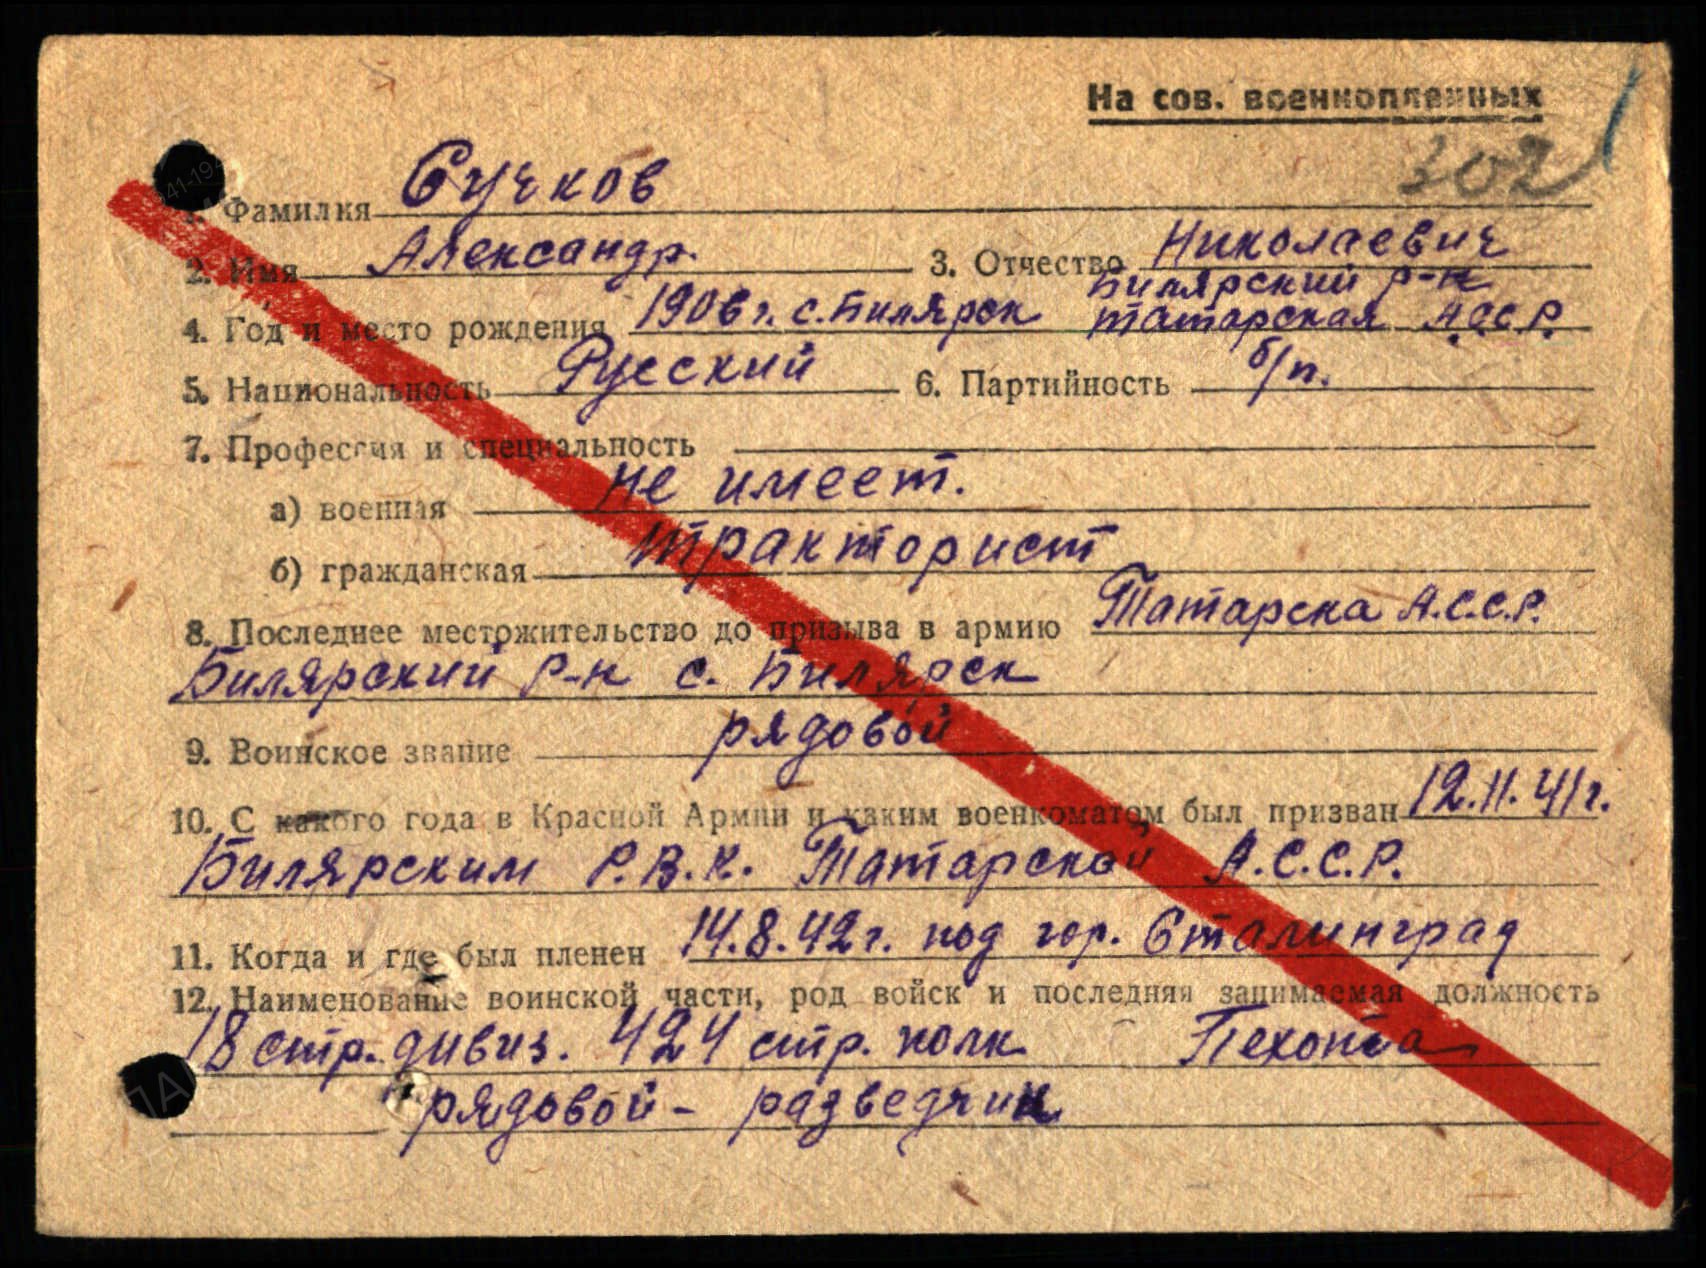 На сов. военнопленных
302
1. Фамилия Сучков
2. Имя Александр. 3. Отчество Николаевич
Билярский р-н
4. Год и место рождения 1906 г. с. Билярск Татарская АССР.
5. Национальность Русский 6. Партийность б/п.
7. Профессия и специальность
а) военная не имеет.
б) гражданская тракторист
8. Последнее местожительство до призыва в армию Татарска А.С.С.Р.
Билярский р-н с. Билярск
9. Воинское звание рядовой
10. С какого года в Красной Армии и каким военкоматом был призван 12.11.41 г.
Билярским Р.В.К. Татарской А.С.С.Р.
11. Когда и где был пленен 14.8.42 г. под гор. Сталинград
12. Наименование воинской части, род войск и последняя занимаемая должность
18 стр. дивиз. 424 стр. полк Пехота
рядовой - разведчик